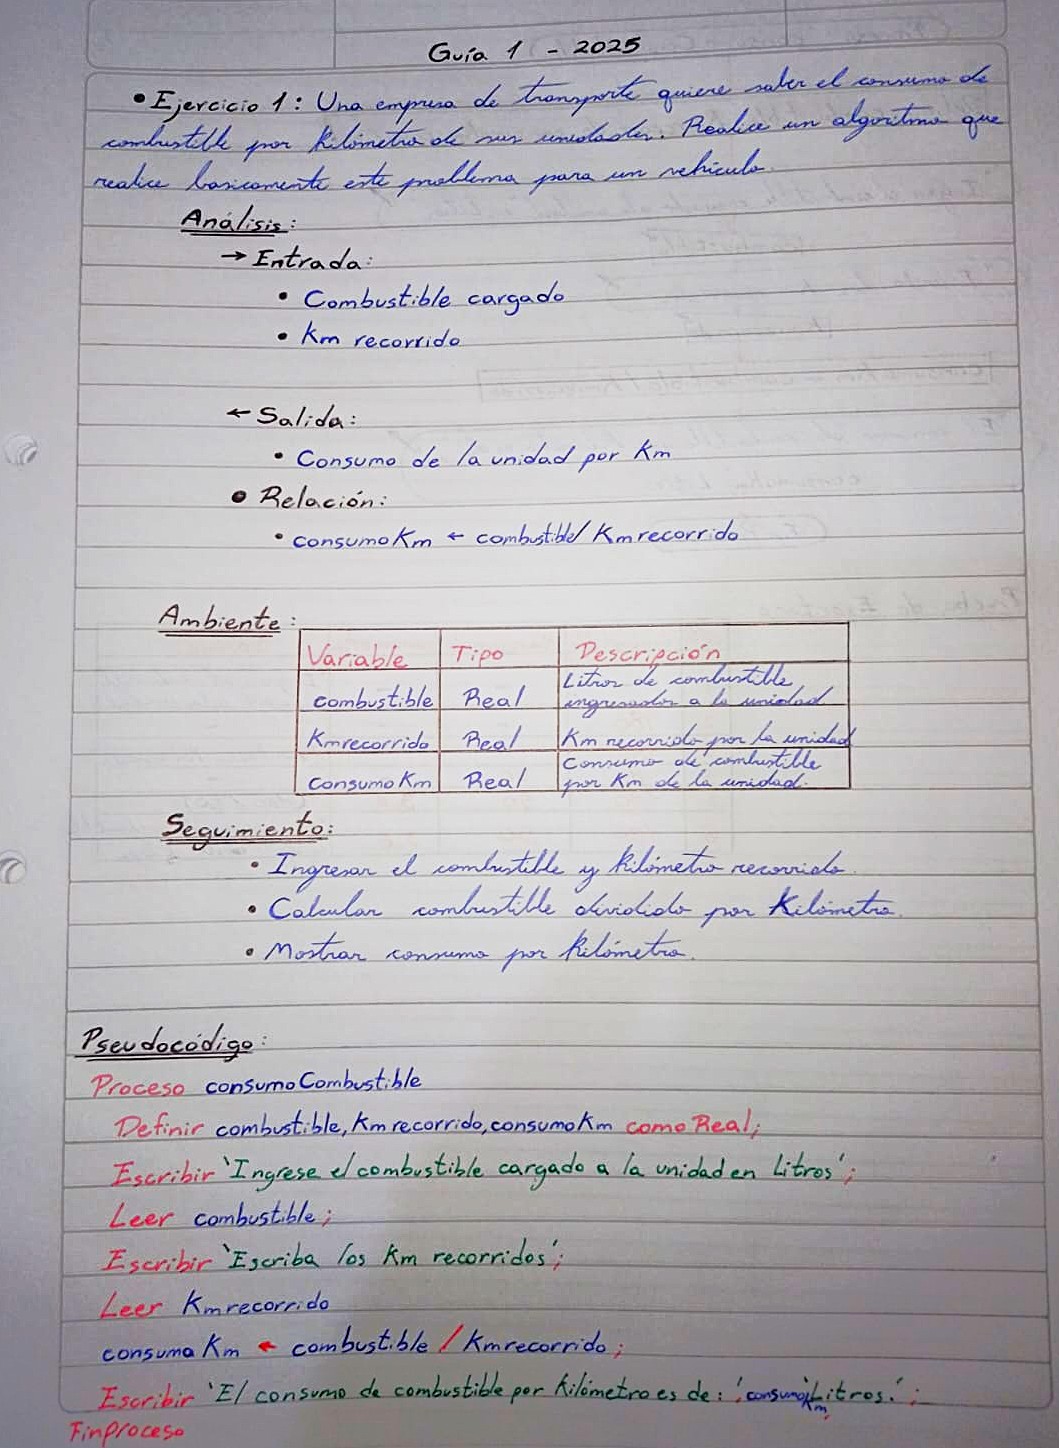 Guía 1 - 2025
• Ejercicio 1: Una empresa de transporte quiere saber el consumo de
combustible por kilómetro de sus unidades. Realice un algoritmo que
realice basicamente este problema para un vehículo.
Análisis:
→ Entrada:
• Combustible cargado
• Km recorrido
← Salida:
• Consumo de la unidad por Km
• Relación:
• consumoKm ← combustible/Kmrecorrido
Ambiente:
Variable Tipo Descripción
combustible Real Litros de combustible
ingresados a la unidad
Kmrecorrido Real Km recorrido por la unidad
consumoKm Real Consumo de combustible
por Km de la unidad.
Seguimiento:
• Ingresar el combustible y kilómetro recorrido.
• Calcular combustible dividido por Kilómetro.
• Mostrar consumo por kilómetro.
Pseudocódigo:
Proceso consumoCombustible
Definir combustible, Kmrecorrido, consumoKm como Real;
Escribir 'Ingrese el combustible cargado a la unidad en Litros';
Leer combustible;
Escribir 'Escriba los Km recorridos';
Leer Kmrecorrido
consumaKm ← combustible / Kmrecorrido;
Escribir 'El consumo de combustible por kilómetro es de: ', consumoKm, 'Litros.';
Finproceso